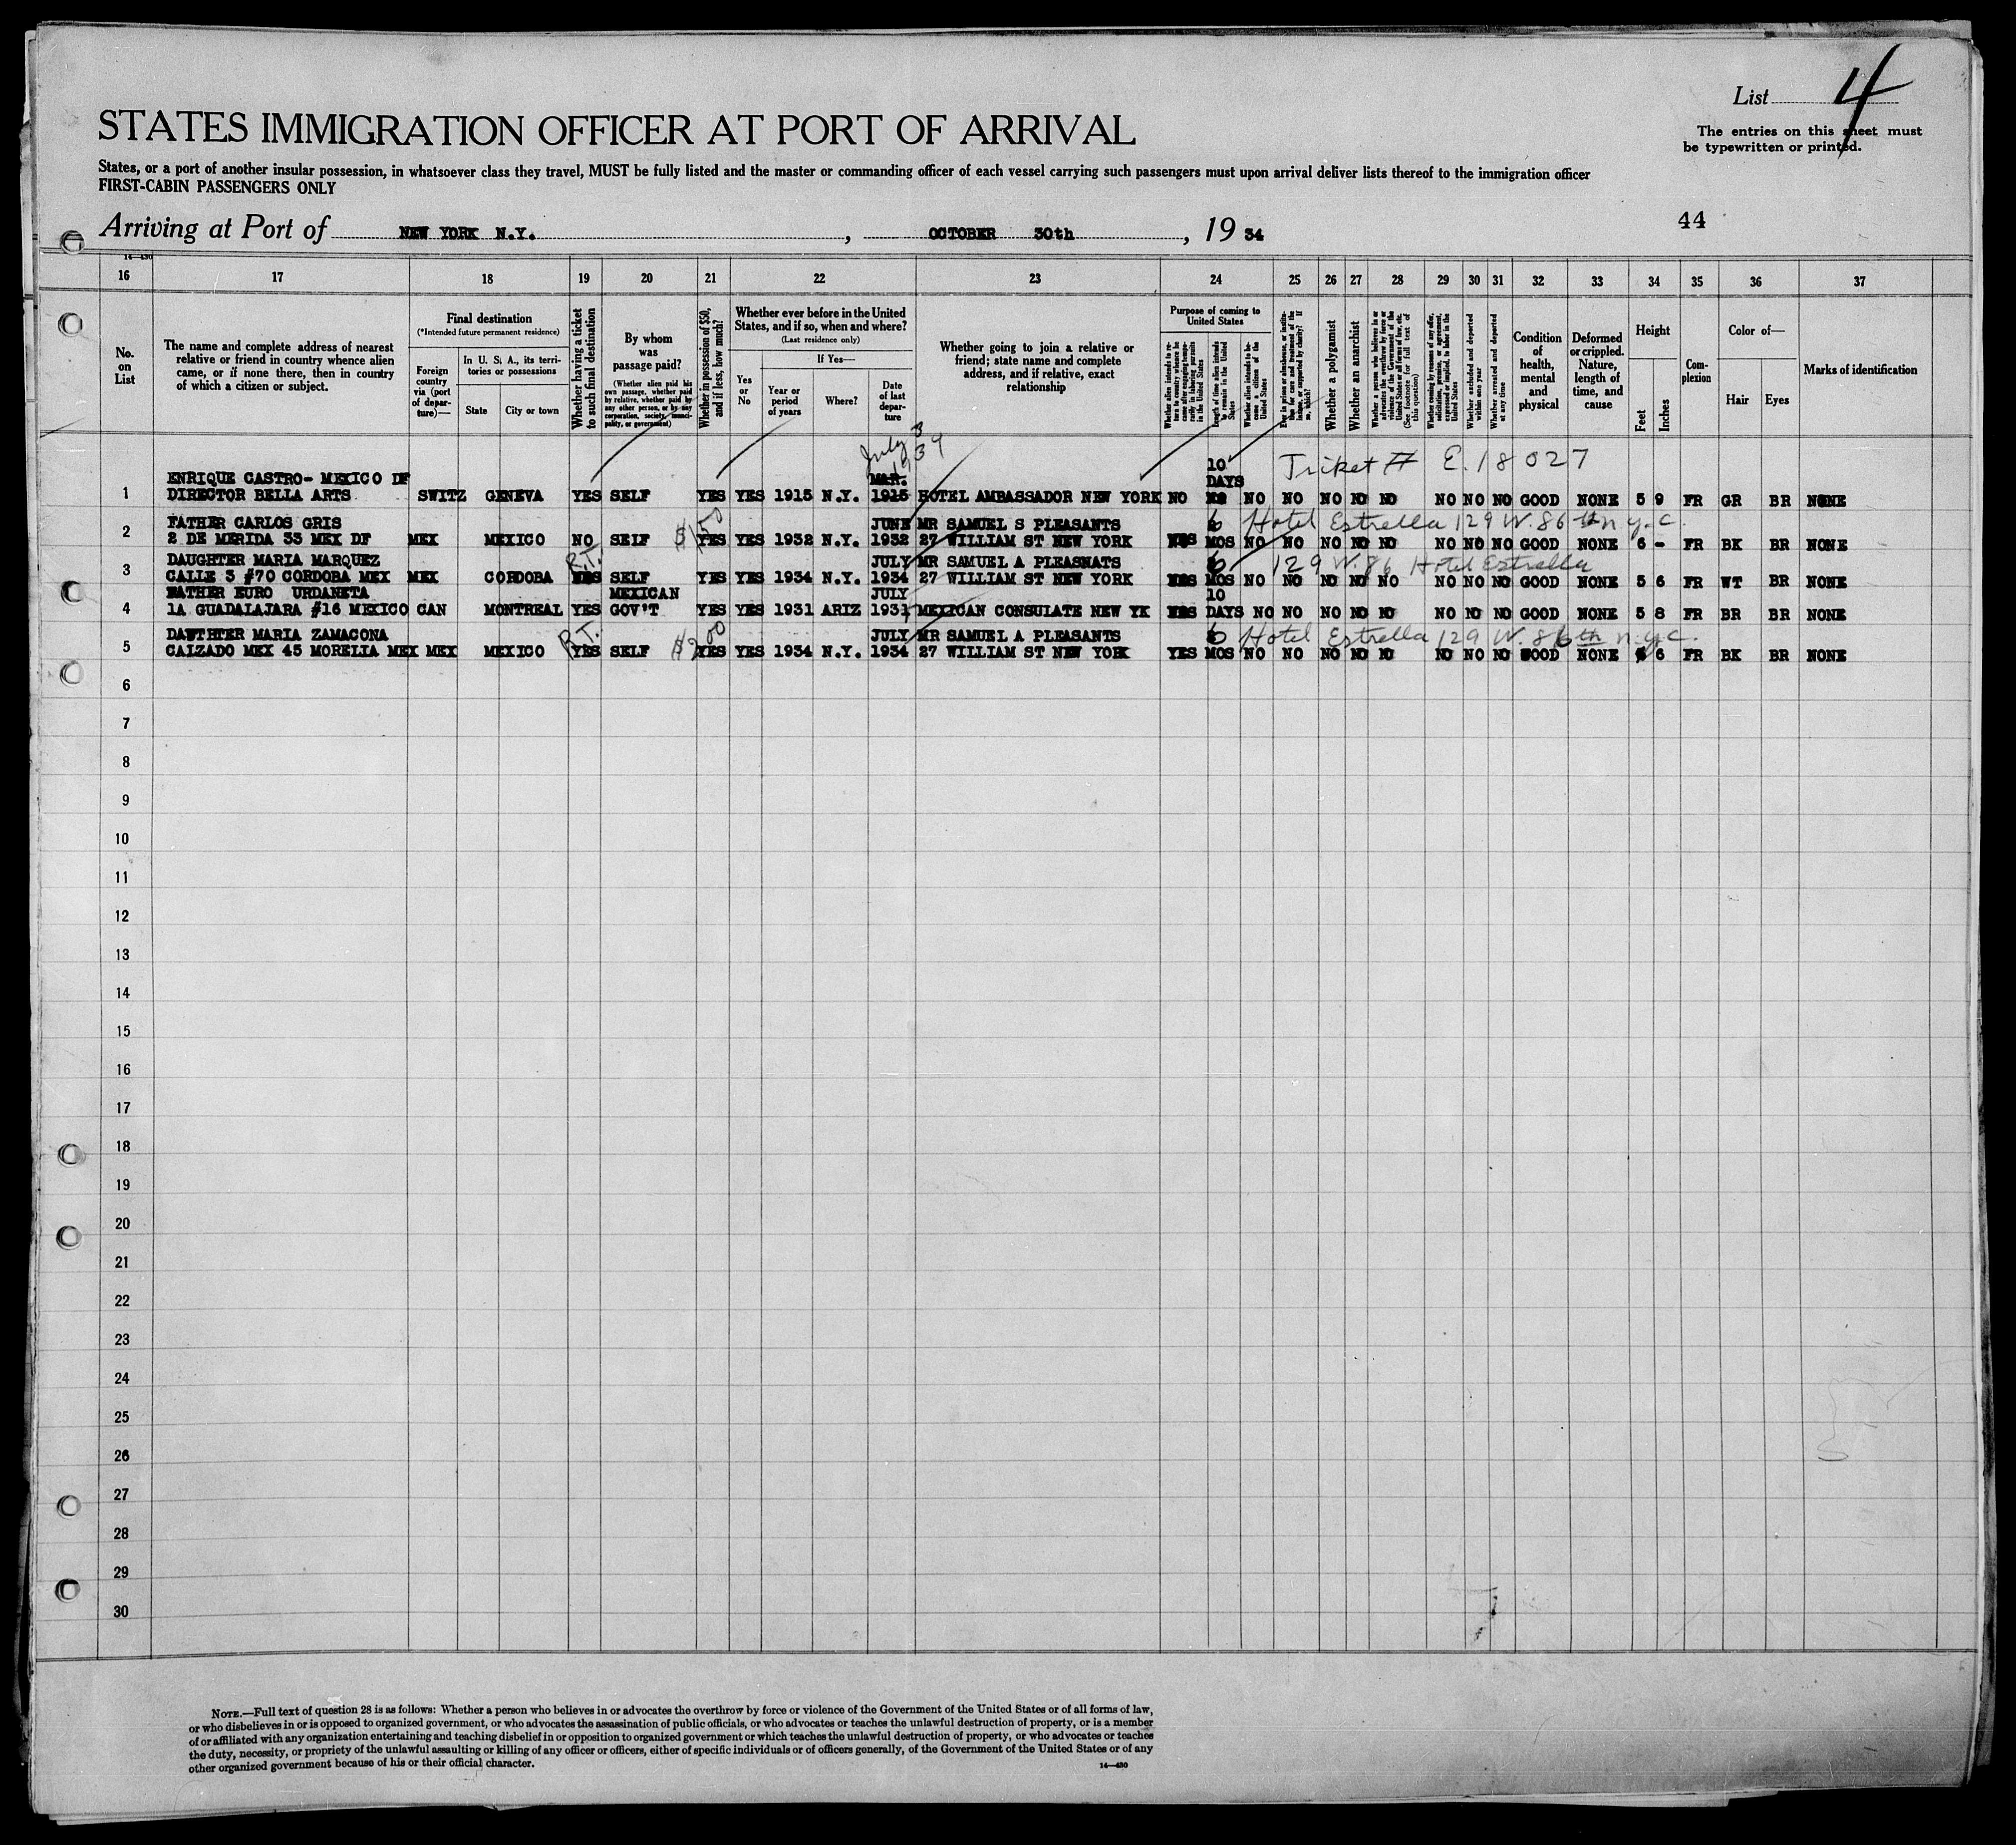 List 4
STATES IMMIGRATION OFFICER AT PORT OF ARRIVAL
The entries on this sheet must
be typewritten or printed.
States, or a port of another insular possession, in whatsoever class they travel, MUST be fully listed and the master or commanding officer of each vessel carrying such passengers must upon arrival deliver lists thereof to the immigration officer
FIRST-CABIN PASSENGERS ONLY
Arriving at Port of NEW YORK N.Y. , OCTOBER 30th , 19 34
44
14—430
16 17 18 19 20 21 22 23 24 25 26 27 28 29 30 31 32 33 34 35 36 37
No. on List
The name and complete address of nearest
relative or friend in country whence alien
came, or if none there, then in country
of which a citizen or subject.
Final destination
(*Intended future permanent residence)
Foreign country via (port of departure)—
In U. S. A., its territories or possessions
State
City or town
Whether having a ticket to such final destination
By whom was passage paid?
(Whether alien paid his own passage, whether paid by relative, whether paid by any other person, or by any corporation, society, municipality, or government)
Whether in possession of $50, and if less, how much?
Whether ever before in the United
States, and if so, when and where?
(Last residence only)
Yes or No
If Yes—
Year or period of years
Where?
Date of last departure
Whether going to join a relative or
friend; state name and complete
address, and if relative, exact
relationship
Purpose of coming to United States
Whether alien intends to return to country whence he came after engaging temporarily in laboring pursuits in the United States
Length of time alien intends to remain in the United States
Whether alien intends to become a citizen of the United States
Ever in prison or almshouse, or institution for care and treatment of the insane, or supported by charity? If so, which?
Whether a polygamist
Whether an anarchist
Whether a person who believes in or advocates the overthrow by force or violence of the Government of the United States or all forms of law, etc. (See footnote for full text of this question)
Whether coming by reason of any offer, solicitation, promise, or agreement, expressed or implied, to labor in the United States
Whether excluded and deported within one year
Whether arrested and deported at any time
Condition of health, mental and physical
Deformed or crippled. Nature, length of time, and cause
Height
Feet
Inches
Complexion
Color of—
Hair
Eyes
Marks of identification
July 3
1934
ENRIQUE CASTRO- MEXICO DF MAR. 10 DAYS Ticket # E.18027
1 DIRECTOR BELLA ARTS SWITZ GENEVA YES SELF YES YES 1915 N.Y. 1915 HOTEL AMBASSADOR NEW YORK NO NO NO NO NO NO NO NO NO GOOD NONE 5 9 FR GR BR NONE
FATHER CARLOS GRIS $150 JUNE MR SAMUEL S PLEASANTS 6 Hotel Estrella 129 W. 86th n.y.c.
2 2 DE MERIDA 33 MEX DF MEX MEXICO NO SELF YES YES 1932 N.Y. 1932 27 WILLIAM ST NEW YORK YES MOS NO NO NO NO NO NO NO NO GOOD NONE 6 - FR BK BR NONE
DAUGHTER MARIA MARQUEZ R.T. JULY MR SAMUEL A PLEASNATS 6 129 W. 86 Hotel Estrella
3 CALLE 3 #70 CORDOBA MEX MEX CORDOBA YES SELF YES YES 1934 N.Y. 1934 27 WILLIAM ST NEW YORK YES MOS NO NO NO NO NO NO NO NO GOOD NONE 5 6 FR WT BR NONE
FATHER EURO URDANETA MEXICAN JULY 10
4 1A GUADALAJARA #16 MEXICO CAN MONTREAL YES GOV'T YES YES 1931 ARIZ 1931 MEXICAN CONSULATE NEW YK YES DAYS NO NO NO NO NO NO NO NO GOOD NONE 5 8 FR BR BR NONE
DAUTHTER MARIA ZAMACONA R.T. $200 JULY MR SAMUEL A PLEASANTS 6 Hotel Estrella 129 W. 86th n.y.c.
5 CALZADO MEX 45 MORELIA MEX MEX MEXICO YES SELF YES YES 1934 N.Y. 1934 27 WILLIAM ST NEW YORK YES MOS NO NO NO NO NO NO NO NO GOOD NONE 6 FR BK BR NONE
6
7
8
9
10
11
12
13
14
15
16
17
18
19
20
21
22
23
24
25
26
27
28
29
30
NOTE.—Full text of question 28 is as follows: Whether a person who believes in or advocates the overthrow by force or violence of the Government of the United States or of all forms of law,
or who disbelieves in or is opposed to organized government, or who advocates the assassination of public officials, or who advocates or teaches the unlawful destruction of property, or is a member
of or affiliated with any organization entertaining and teaching disbelief in or opposition to organized government or which teaches the unlawful destruction of property, or who advocates or teaches
the duty, necessity, or propriety of the unlawful assaulting or killing of any officer or officers, either of specific individuals or of officers generally, of the Government of the United States or of any
other organized government because of his or their official character.
14—430